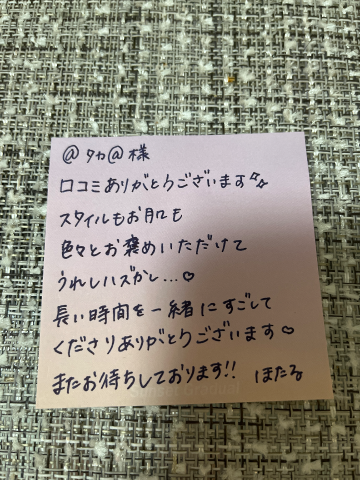 @タカ@様
口コミありがとうございます✨
スタイルもお肌も
色々とお褒めいただけて
うれしハズかし…♡
長い時間を一緒にすごして
くださりありがとうございます♡
またお待ちしております!! ほたる